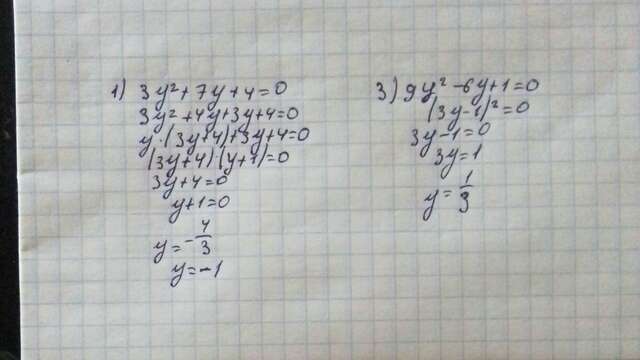 1) 3y²+7y+4=0
3y²+4y+3y+4=0
y·(3y+4)+3y+4=0
(3y+4)·(y+1)=0
3y+4=0
y+1=0
y=-4/3
y=-1
3) 9y²-6y+1=0
(3y-1)²=0
3y-1=0
3y=1
y=1/3